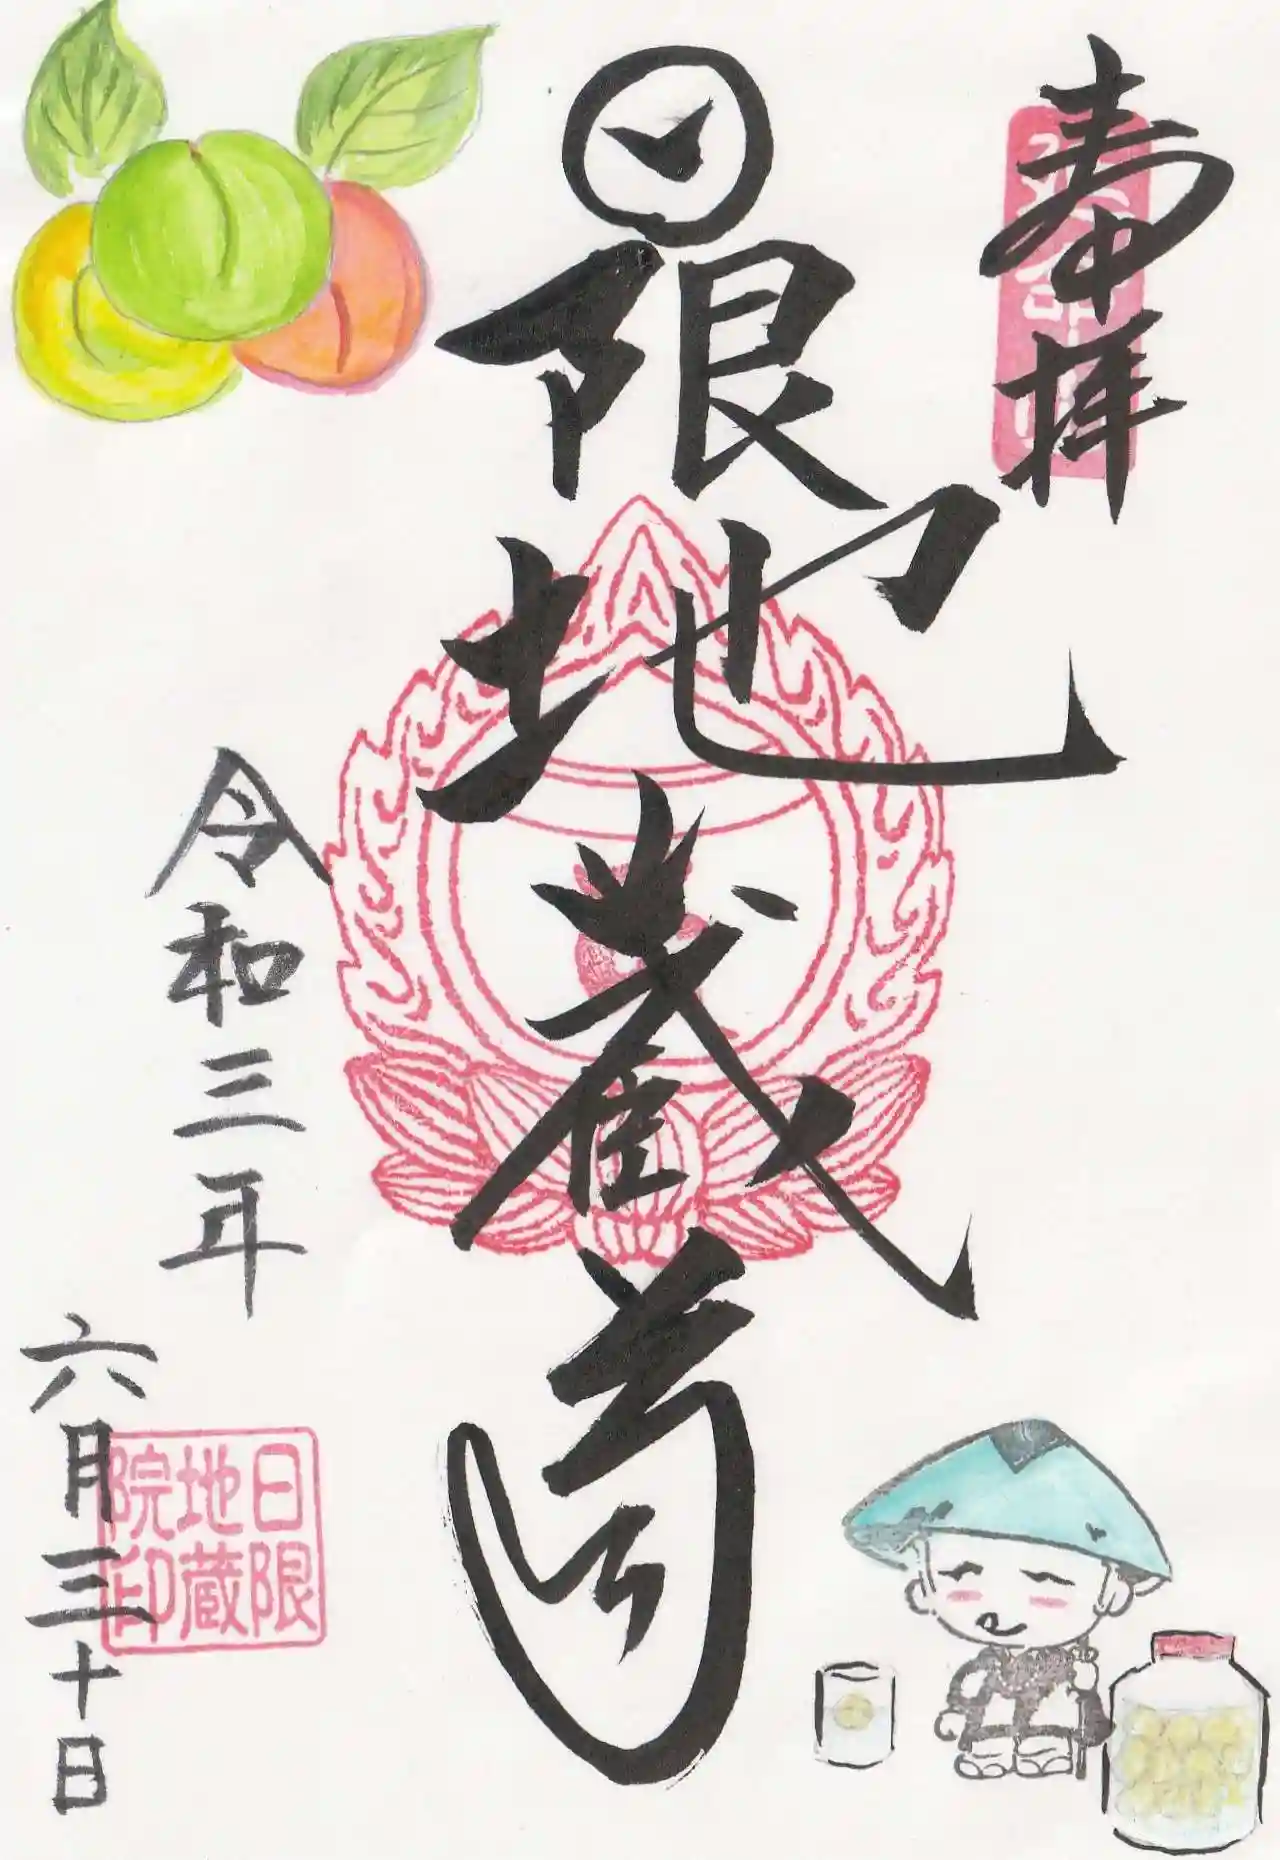 奉拝
日限地蔵尊
令和三年
六月三十日
日限
地蔵
院印